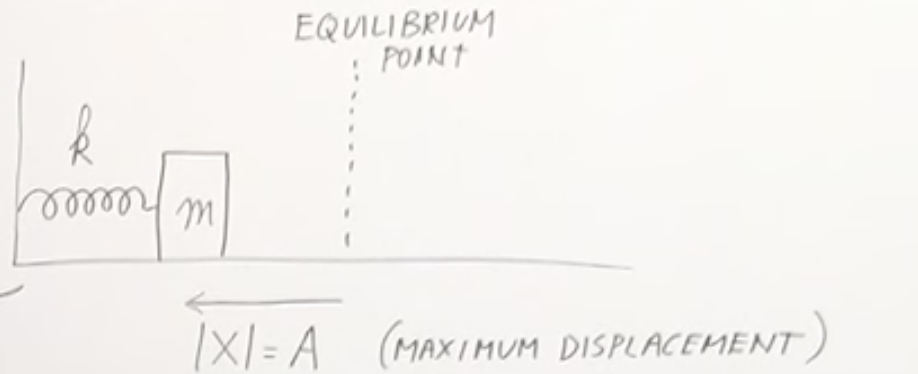 EQUILIBRIUM
POINT
k
m
|X| = A (MAXIMUM DISPLACEMENT)